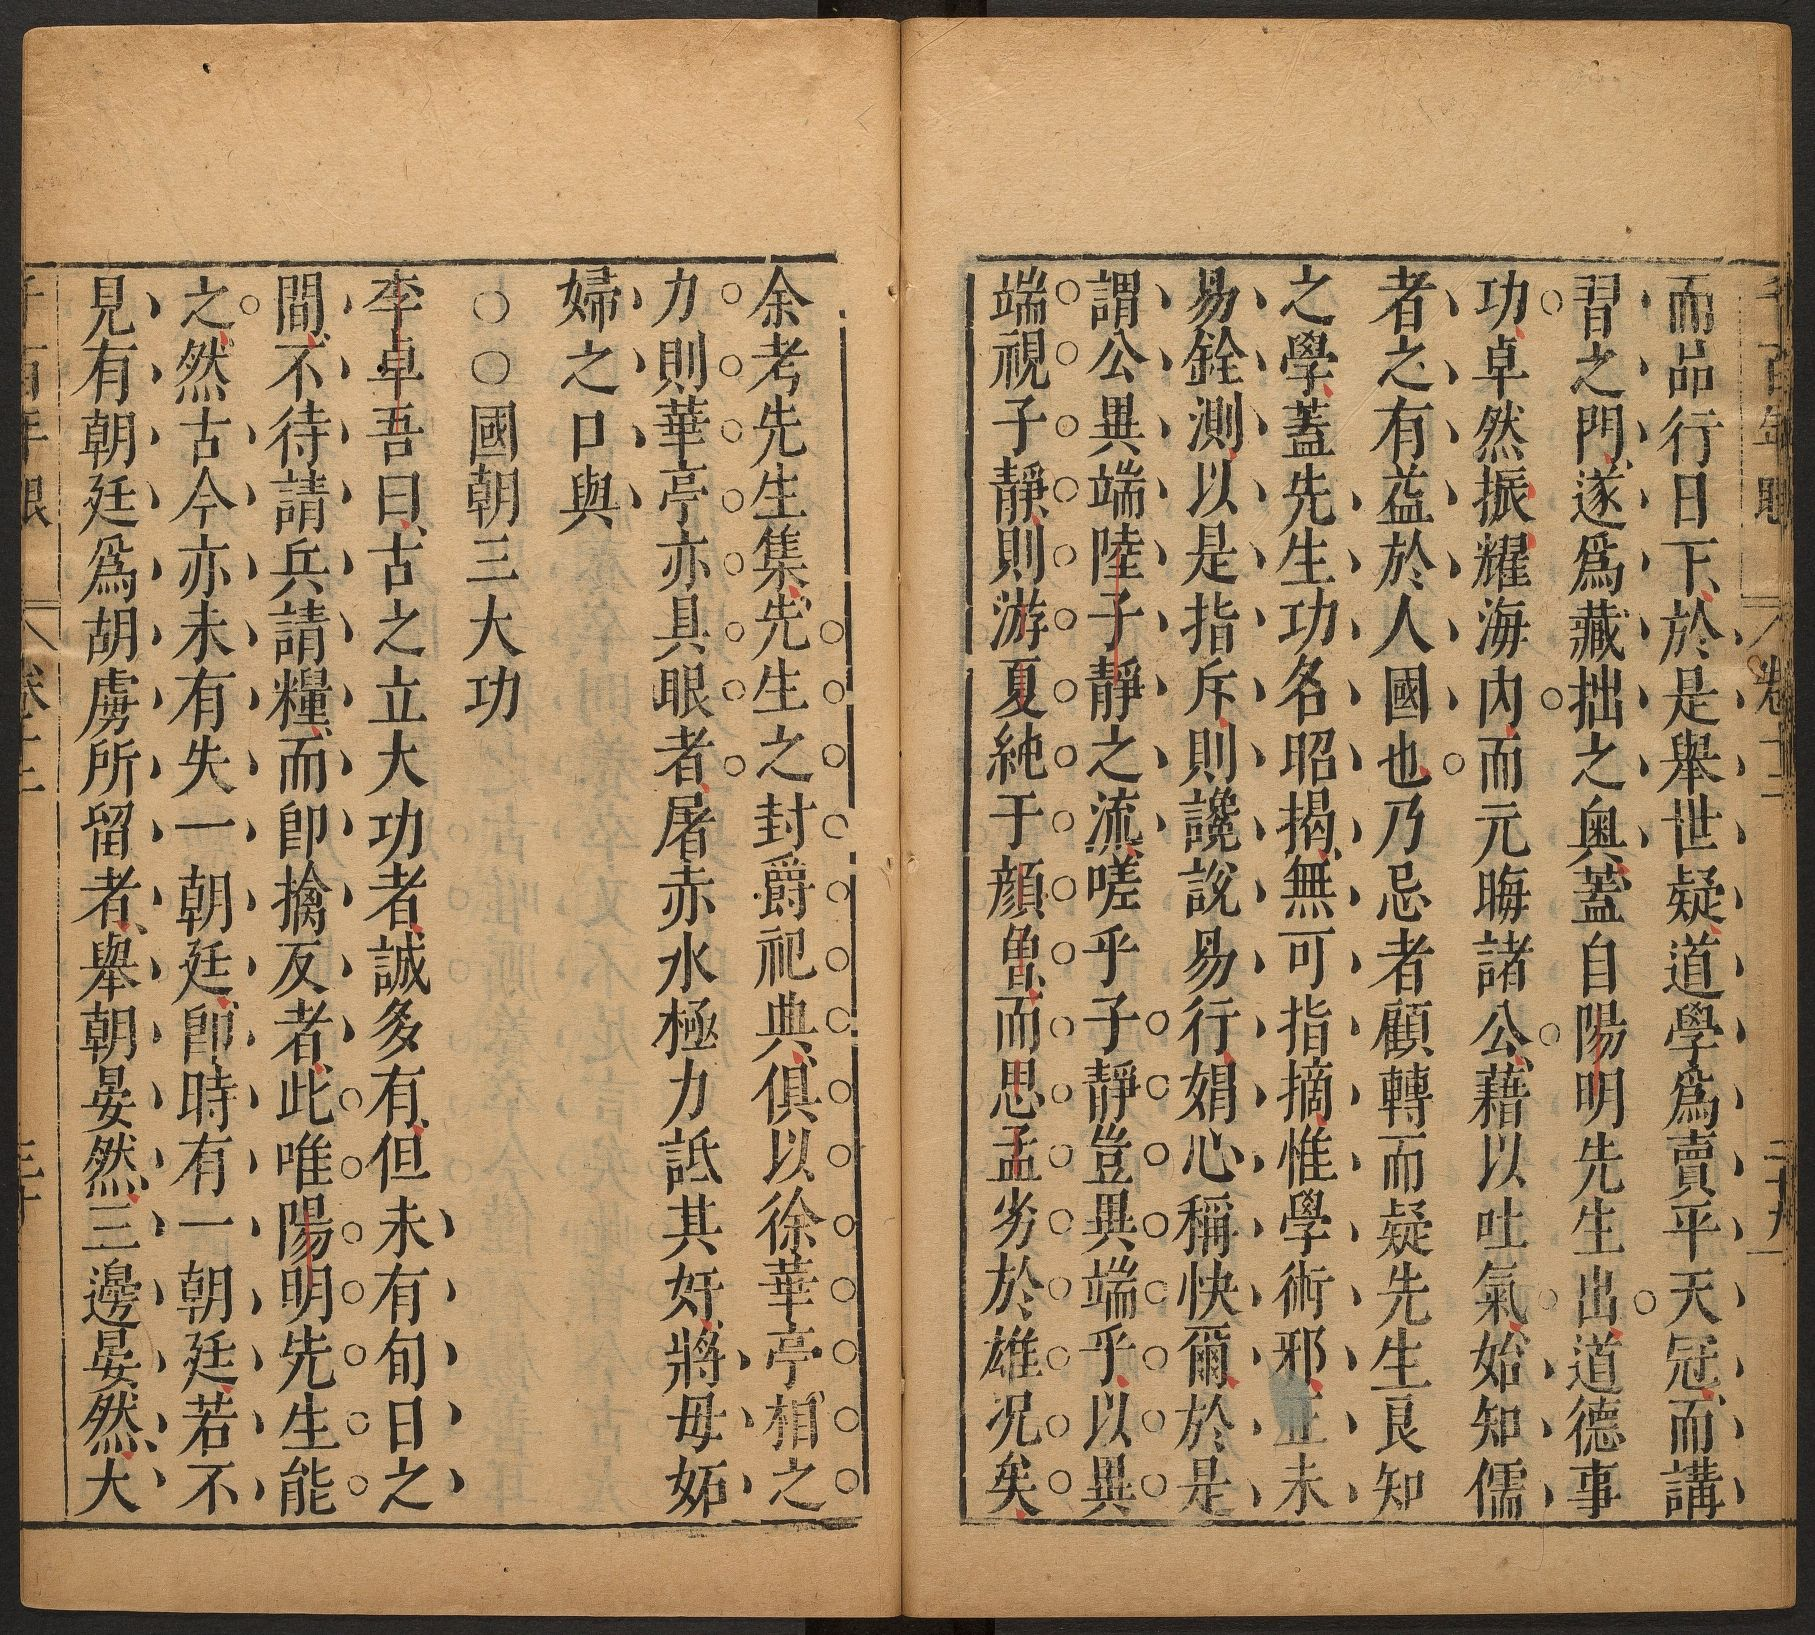 千百年眼 卷十二 二十九
而品行日下於是舉世疑道學爲賣平天冠而講
習之門遂爲藏拙之奧蓋自陽明先生出道德事
功卓然振耀海内而元晦諸公藉以吐氣始知儒
者之有益於人國也乃忌者顧轉而疑先生良知
之學蓋先生功名昭揭無可指摘惟學術邪正未
易銓測以是指斥則讒說易行娼心稱快爾於是
謂公異端陸子靜之流嗟乎子靜豈異端乎以異
端視子靜則游夏純于顔魯而思孟劣於雄况矣
余考先生集先生之封爵祀典俱以徐華亭相之
力則華亭亦具眼者屠赤水極力詆其奸將毋妬
婦之口與
○○國朝三大功
李卓吾曰古之立大功者誠多有但未有旬日之
間不待請兵請糧而卽擒反者此唯陽明先生能
之然古今亦未有失一朝廷卽時有一朝廷若不
見有朝廷爲胡虜所留者舉朝晏然三邊晏然大
千百年眼 卷十二 三十